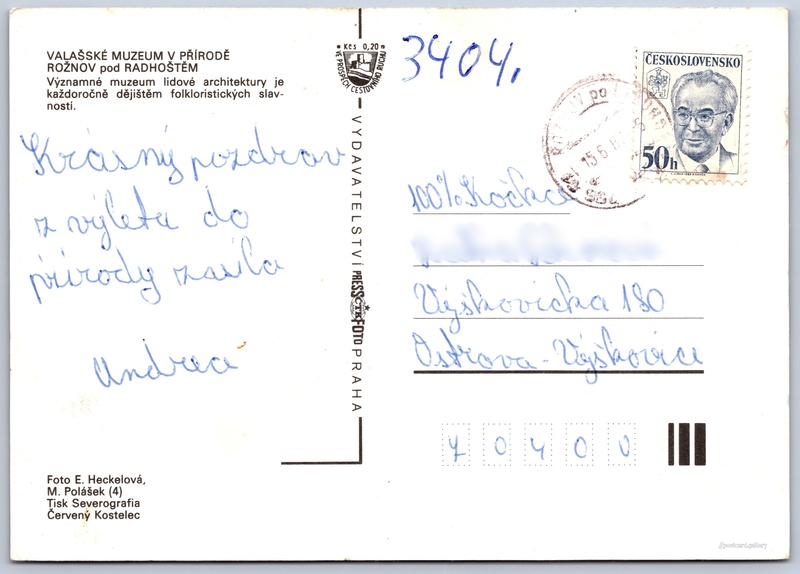 VALAŠSKÉ MUZEUM V PŘÍRODĚ
ROŽNOV pod RADHOŠTĚM
Významné muzeum lidové architektury je
každoročně dějištěm folkloristických slav-
ností.
Krásný pozdrav
z výletu do
přírody zasílá
Andrea
Foto E. Heckelová,
M. Polášek (4)
Tisk Severografia
Červený Kostelec
Kčs 0,20
VE PROSPĚCH CESTOVNÍHO RUCHU
VYDAVATELSTVÍ PRESSFOTO PRAHA
ČTK
3404,
ČESKOSLOVENSKO
50h
15.6.
100% Kočka
Výškovická 180
Ostrava-Výškovice
70400